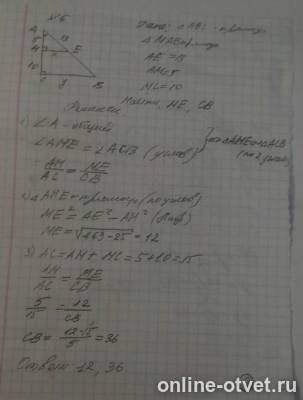 №6
Дано: △ABC - прямоуг
△MAE прямоуг
AE = 13
AM = 5
MC = 10
Найти: ME, CB
Решение
1) ∠A - общий
∠AME = ∠ACB (услов) } => △AME ∾ △ACB (по 2 углам)
AM/AC = ME/CB
2) △AME - прямоуг (по услов)
ME² = AE² - AM² (Пиф)
ME = √169-25 = 12
3) AC = AM + MC = 5+10 = 15
AM/AC = ME/CB
5/15 = 12/CB
CB = 12·15/5 = 36
Ответ: 12, 36.
online-otvet.ru